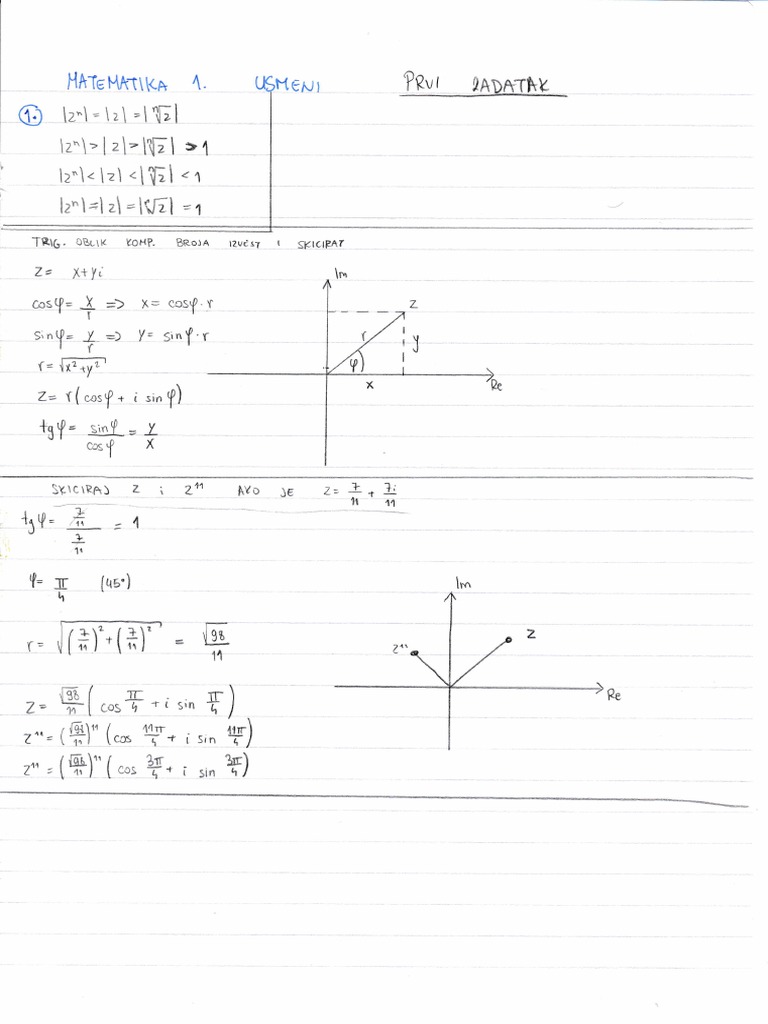 MATEMATIKA 1. USMENI PRVI ZADATAK
1. |zⁿ| = |z| = |ⁿ√z|
|zⁿ| > |z| > |ⁿ√z| > 1
|zⁿ| < |z| < |ⁿ√z| < 1
|zⁿ| = |z| = |ⁿ√z| = 1
TRIG. OBLIK KOMP. BROJA IZVEST I SKICIRAT
z = x + yi
cosφ = x/r => x = cosφ · r
sinφ = y/r => y = sinφ · r
r = √(x² + y²)
z = r(cosφ + i sinφ)
tgφ = sinφ/cosφ = y/x
Im
z
r
y
φ
x
Re
SKICIRAJ z i z¹¹ AKO JE z = 7/11 + 7i/11
tgφ = (7/11)/(7/11) = 1
φ = π/4 (45°)
r = √((7/11)² + (7/11)²) = √98/11
z = √98/11 (cos π/4 + i sin π/4)
z¹¹ = (√98/11)¹¹ (cos 11π/4 + i sin 11π/4)
z¹¹ = (√98/11)¹¹ (cos 3π/4 + i sin 3π/4)
Im
z
z¹¹
Re